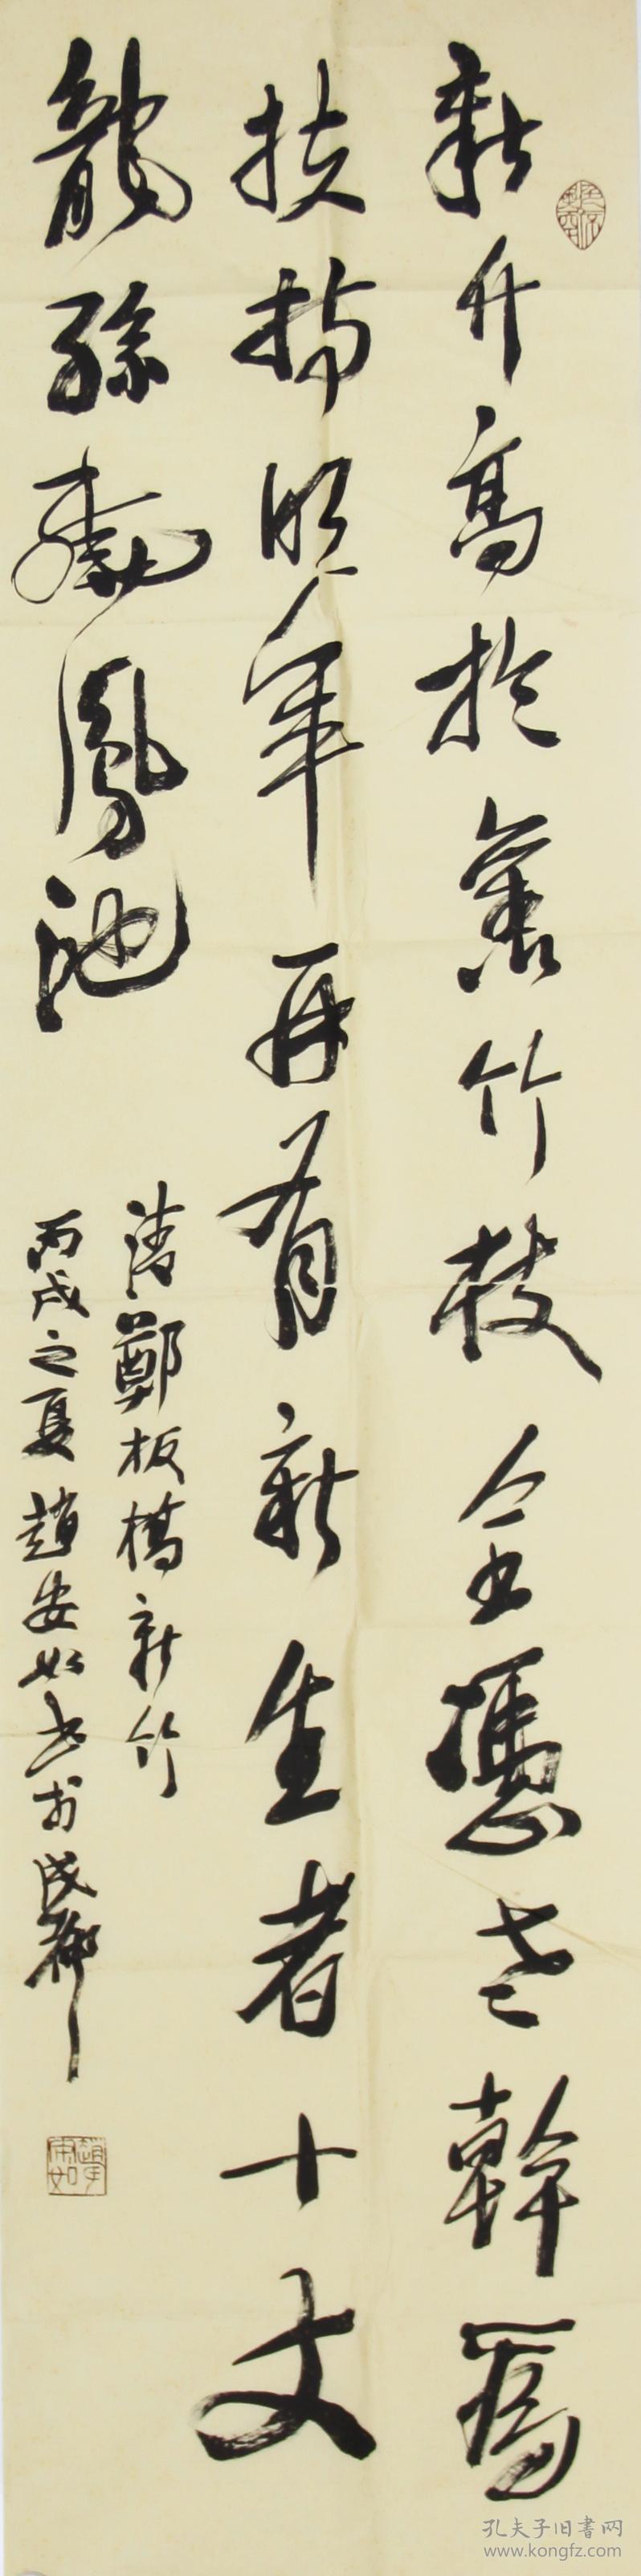 新竹高於舊竹枝全憑老幹為
扶持明年再有新生者十丈
龍孫繞鳳池
清鄭板橋新竹
丙戌之夏趙安如書於成都
趙安如
孔夫子旧書网
www.kongfz.com